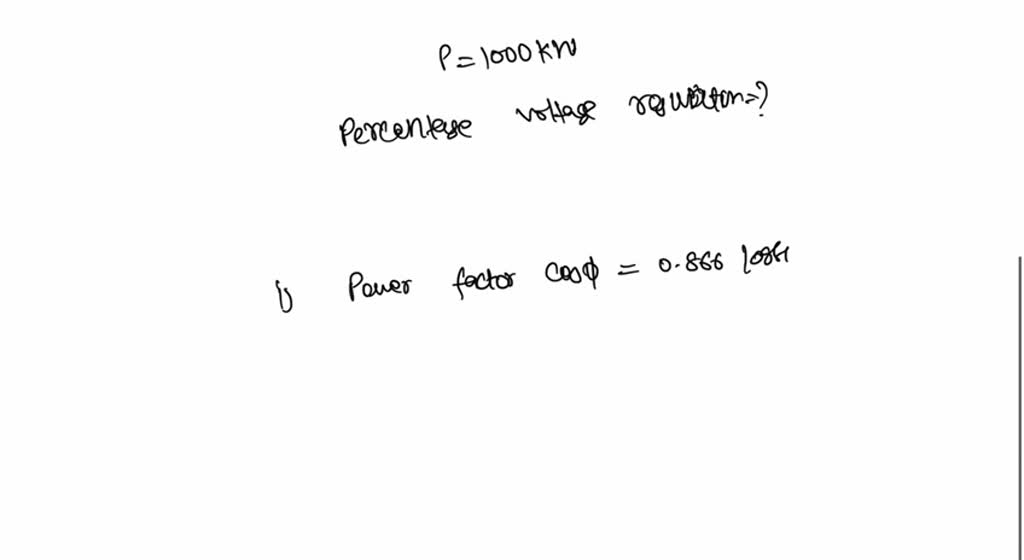 P = 1000 KW
Percentage voltage regulation = ?
i) Power factor cosϕ = 0.866